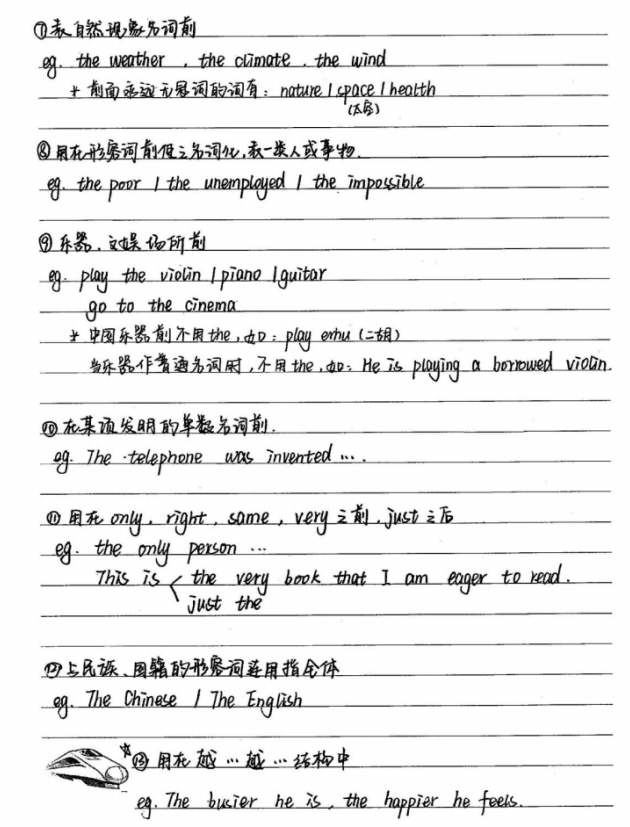 ⑦表自然现象名词前
eg. the weather , the climate . the wind
* 前面永远无冠词的词有: nature / space / health
(太空)
⑧用在形容词前使之名词化,表一类人或事物.
eg. the poor / the unemployed / the impossible
⑨乐器、文娱场所前
eg. play the violin / piano / guitar
go to the cinema
* 中国乐器前不用the,如: play erhu (二胡)
当乐器作普通名词时,不用the,如: He is playing a borrowed violin.
⑩在某项发明的单数名词前.
eg. The telephone was invented ….
⑪用在 only, right, same, very 之前, just 之后
eg. the only person …
This is < the very book that I am eager to read.
just the
⑫与民族、国籍的形容词连用指全体
eg. The Chinese / The English
☆⑬用在越…越…结构中
eg. The busier he is, the happier he feels.